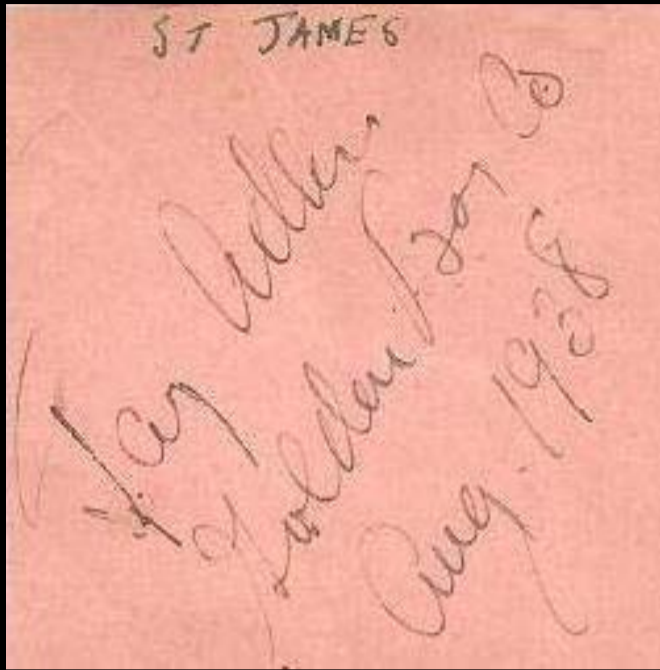 ST JAMES
Jay Adler
Golden Boy Co
Aug. 1938